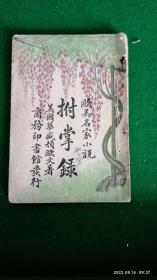 歐美名家小說
拊掌錄
美國華盛頓歐文著
商務印書館發行
2022.09.16 09:37